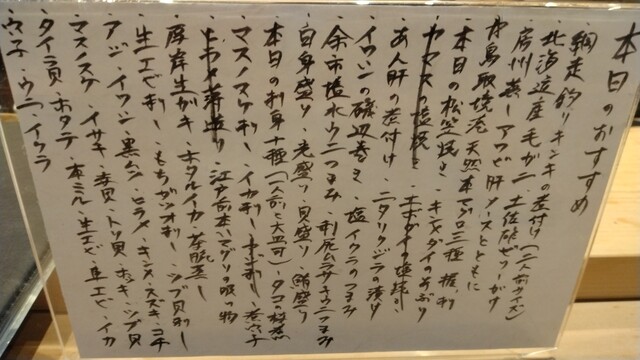 本日のおすすめ
・網走釣りキンキの煮付け(二人前サイズ)
・北海道産毛がニ 土佐酢ゼリーがけ
・房州蒸しアワビ 肝ソースとともに
・鳥取境港天然本マグロ三種 握、刺
・本日の松笠焼き ・キンメダイのあぶり
・ヤマメの塩焼 ・エボダイの塩焼き
・あん肝の煮付け ・ニタリクジラの漬け
・イワシの磯辺巻き ・塩イクラのつまみ
・余市塩水ウニつまみ ・利尻ムラサキウニつまみ
・白身盛り ・光盛り ・貝盛り ・鮪盛り
・本日の刺身十種(一人前と大皿可) ・タコ桜煮
・マスノスケ刺し ・イカ刺し ・アジ刺し ・煮穴子
・ヒラメ薄造り ・江戸前本ハマグリの吸い物
・厚岸生がキ ・ホタルイカ ・茶碗蒸し
・生エビ刺し ・もちがつオ刺し ・ツブ貝刺し
・アジ ・イワシ ・黒ムツ ・ヒラメ ・キンメ ・スズキ ・コチ
・マスノスケ ・イサキ ・赤貝 ・トリ貝 ・ホッキ ・ツブ貝
・タイラ貝 ・ホタテ ・本ミル ・生エビ ・車エビ ・イカ
・穴子 ・ウニ ・イクラ